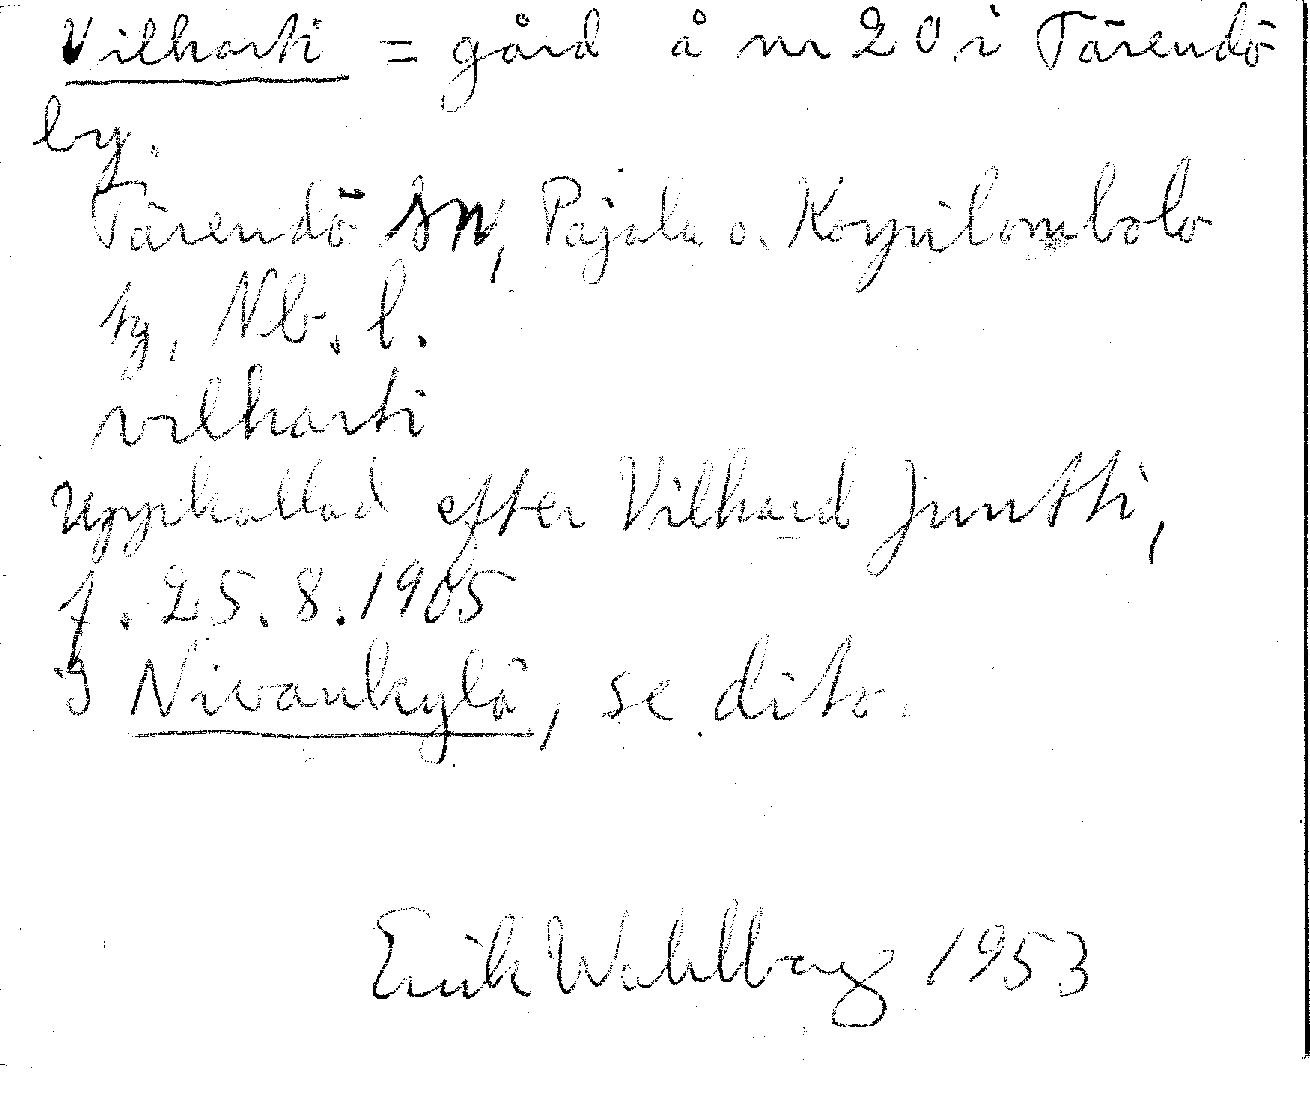 Vilharti = gård å nr 20 i Tärendö
by.
Tärendö sn, Pajala o. Korpilombolo
tg, Nb. l.
vilharti
Uppkallad efter Vilhard Juntti,
f. 25.8.1905
I Nivankylä, se dito.
Erik Wahlberg 1953